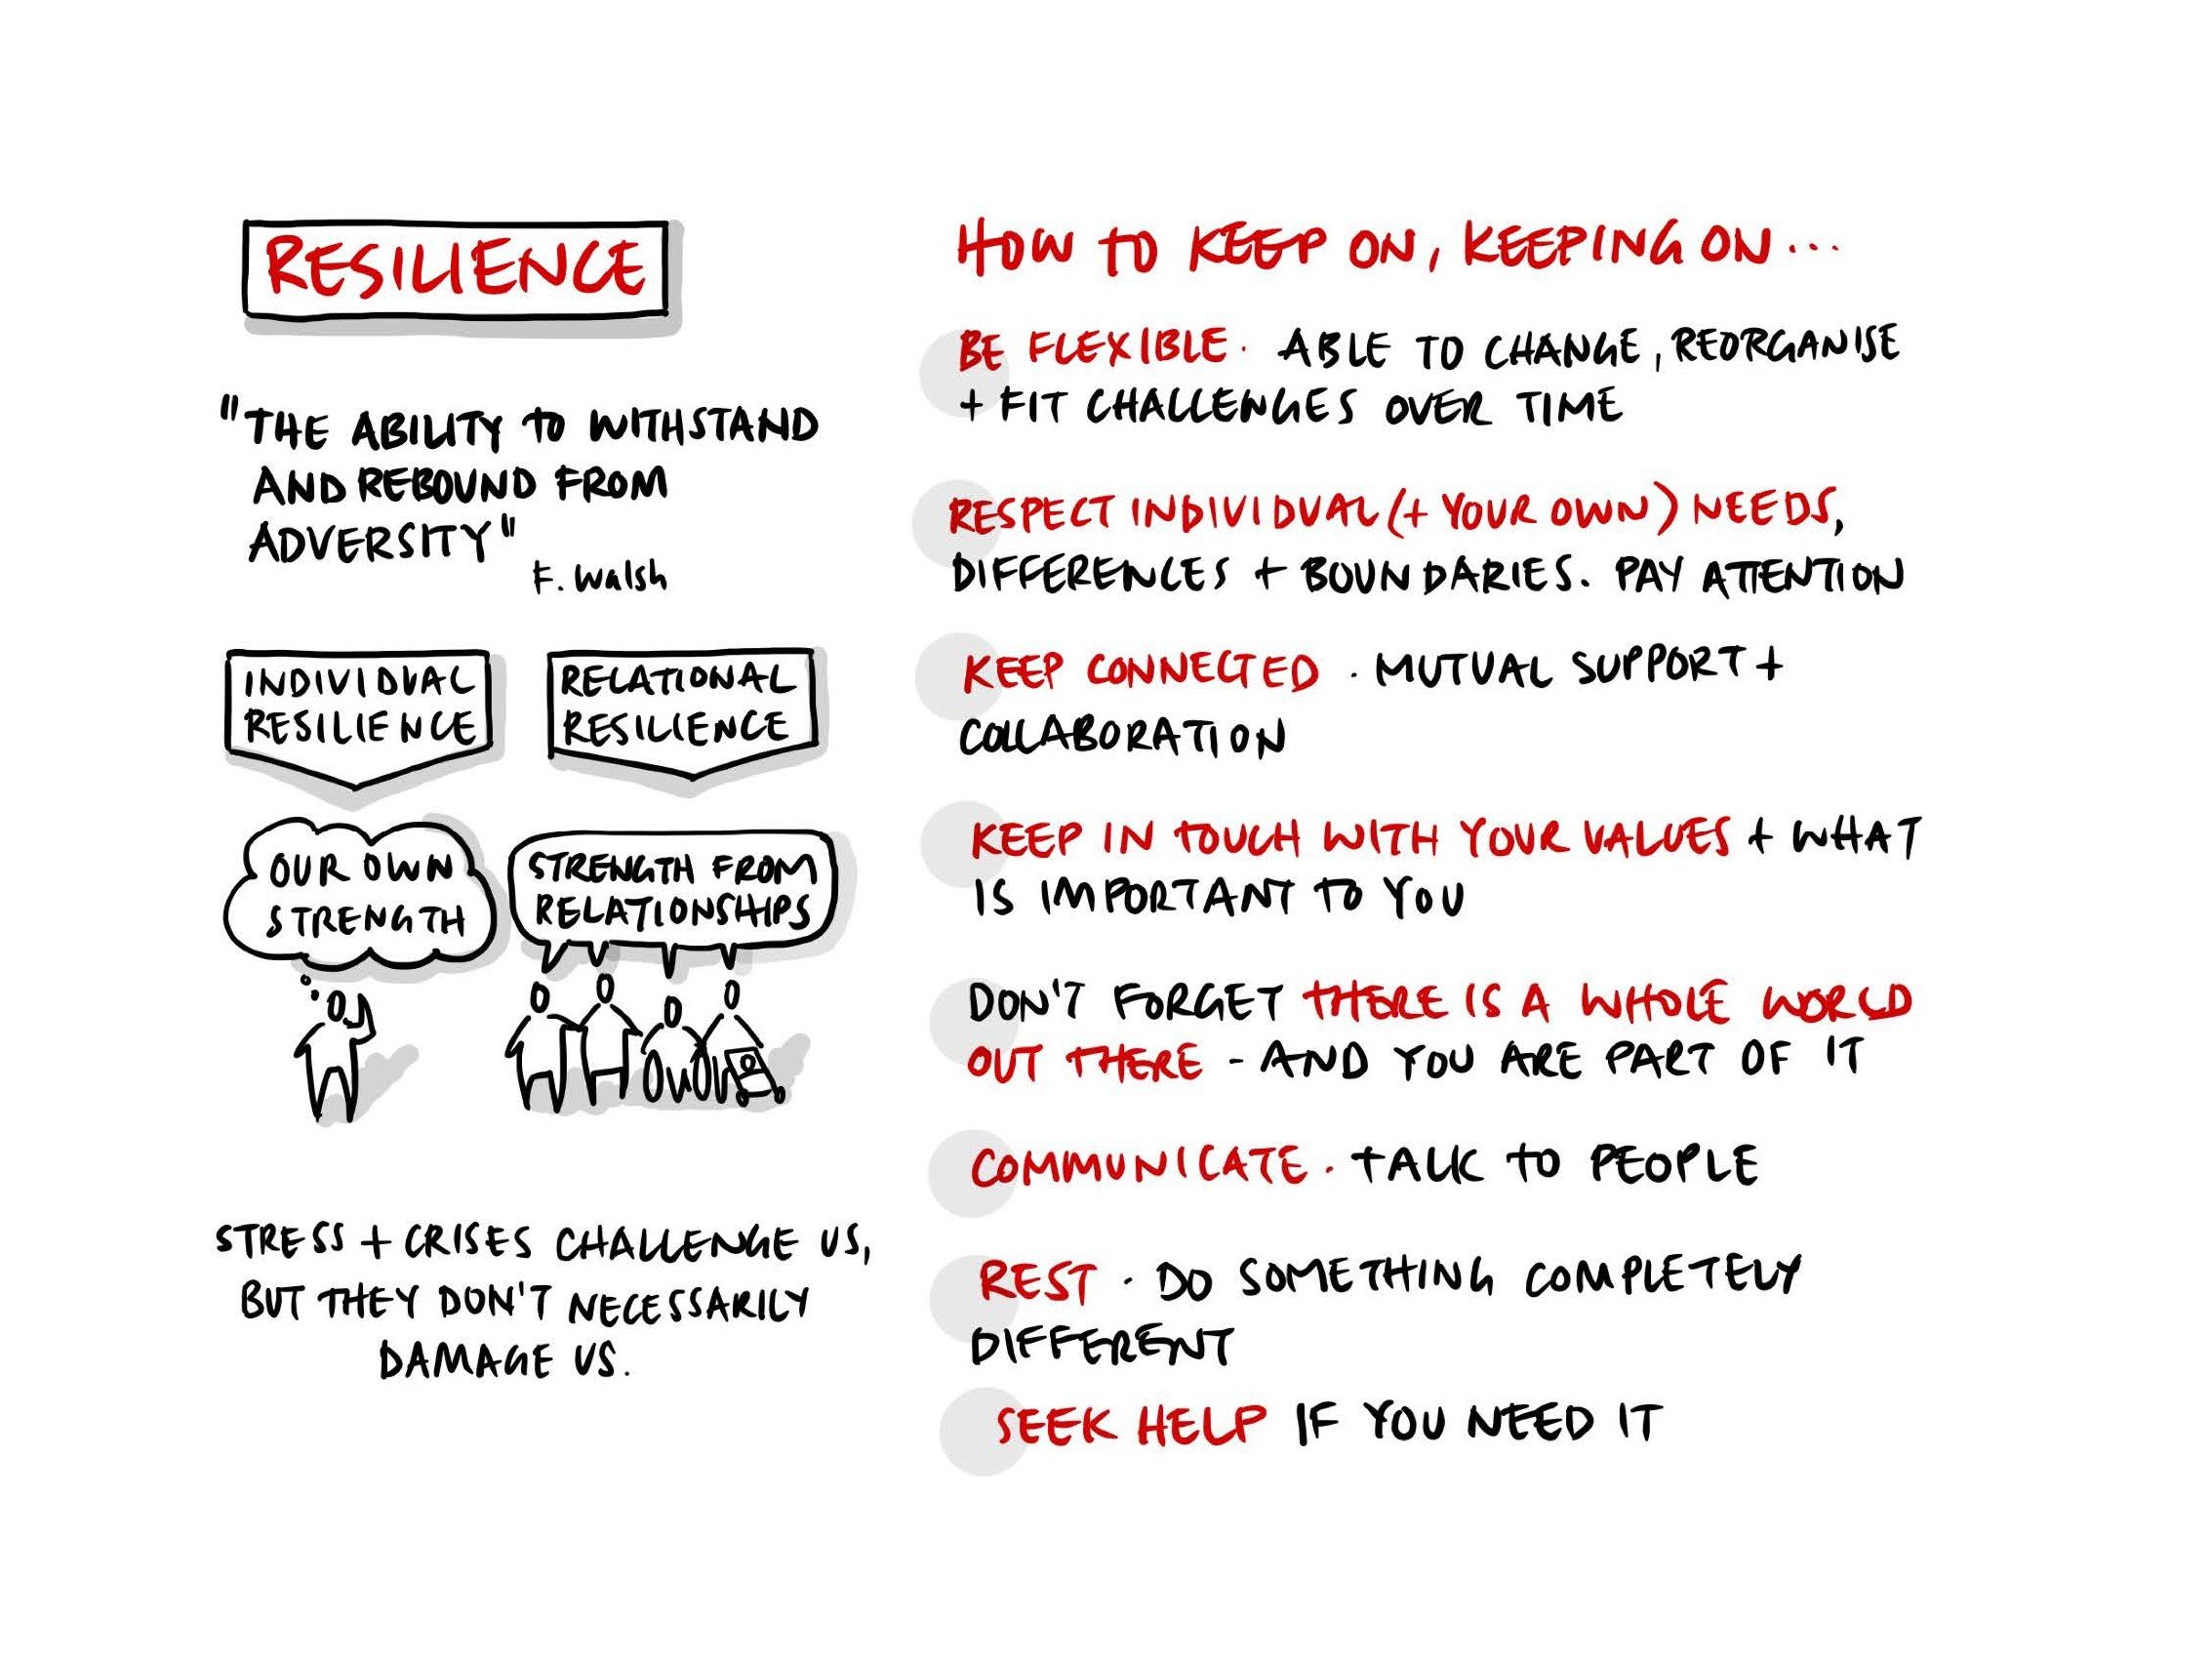 RESILIENCE
"THE ABILITY TO WITHSTAND
AND REBOUND FROM
ADVERSITY"
F. Walsh
INDIVIDUAL
RESILIENCE
RELATIONAL
RESILIENCE
OUR OWN
STRENGTH
STRENGTH FROM
RELATIONSHIPS
STRESS + CRISES CHALLENGE US,
BUT THEY DON'T NECESSARILY
DAMAGE US.
HOW TO KEEP ON, KEEPING ON...
BE FLEXIBLE · ABLE TO CHANGE, REORGANISE
+ FIT CHALLENGES OVER TIME
RESPECT INDIVIDUAL (+ YOUR OWN) NEEDS,
DIFFERENCES + BOUNDARIES. PAY ATTENTION
KEEP CONNECTED · MUTUAL SUPPORT +
COLLABORATION
KEEP IN TOUCH WITH YOUR VALUES + WHAT
IS IMPORTANT TO YOU
DON'T FORGET THERE IS A WHOLE WORLD
OUT THERE - AND YOU ARE PART OF IT
COMMUNICATE · TALK TO PEOPLE
REST · DO SOMETHING COMPLETELY
DIFFERENT
SEEK HELP IF YOU NEED IT